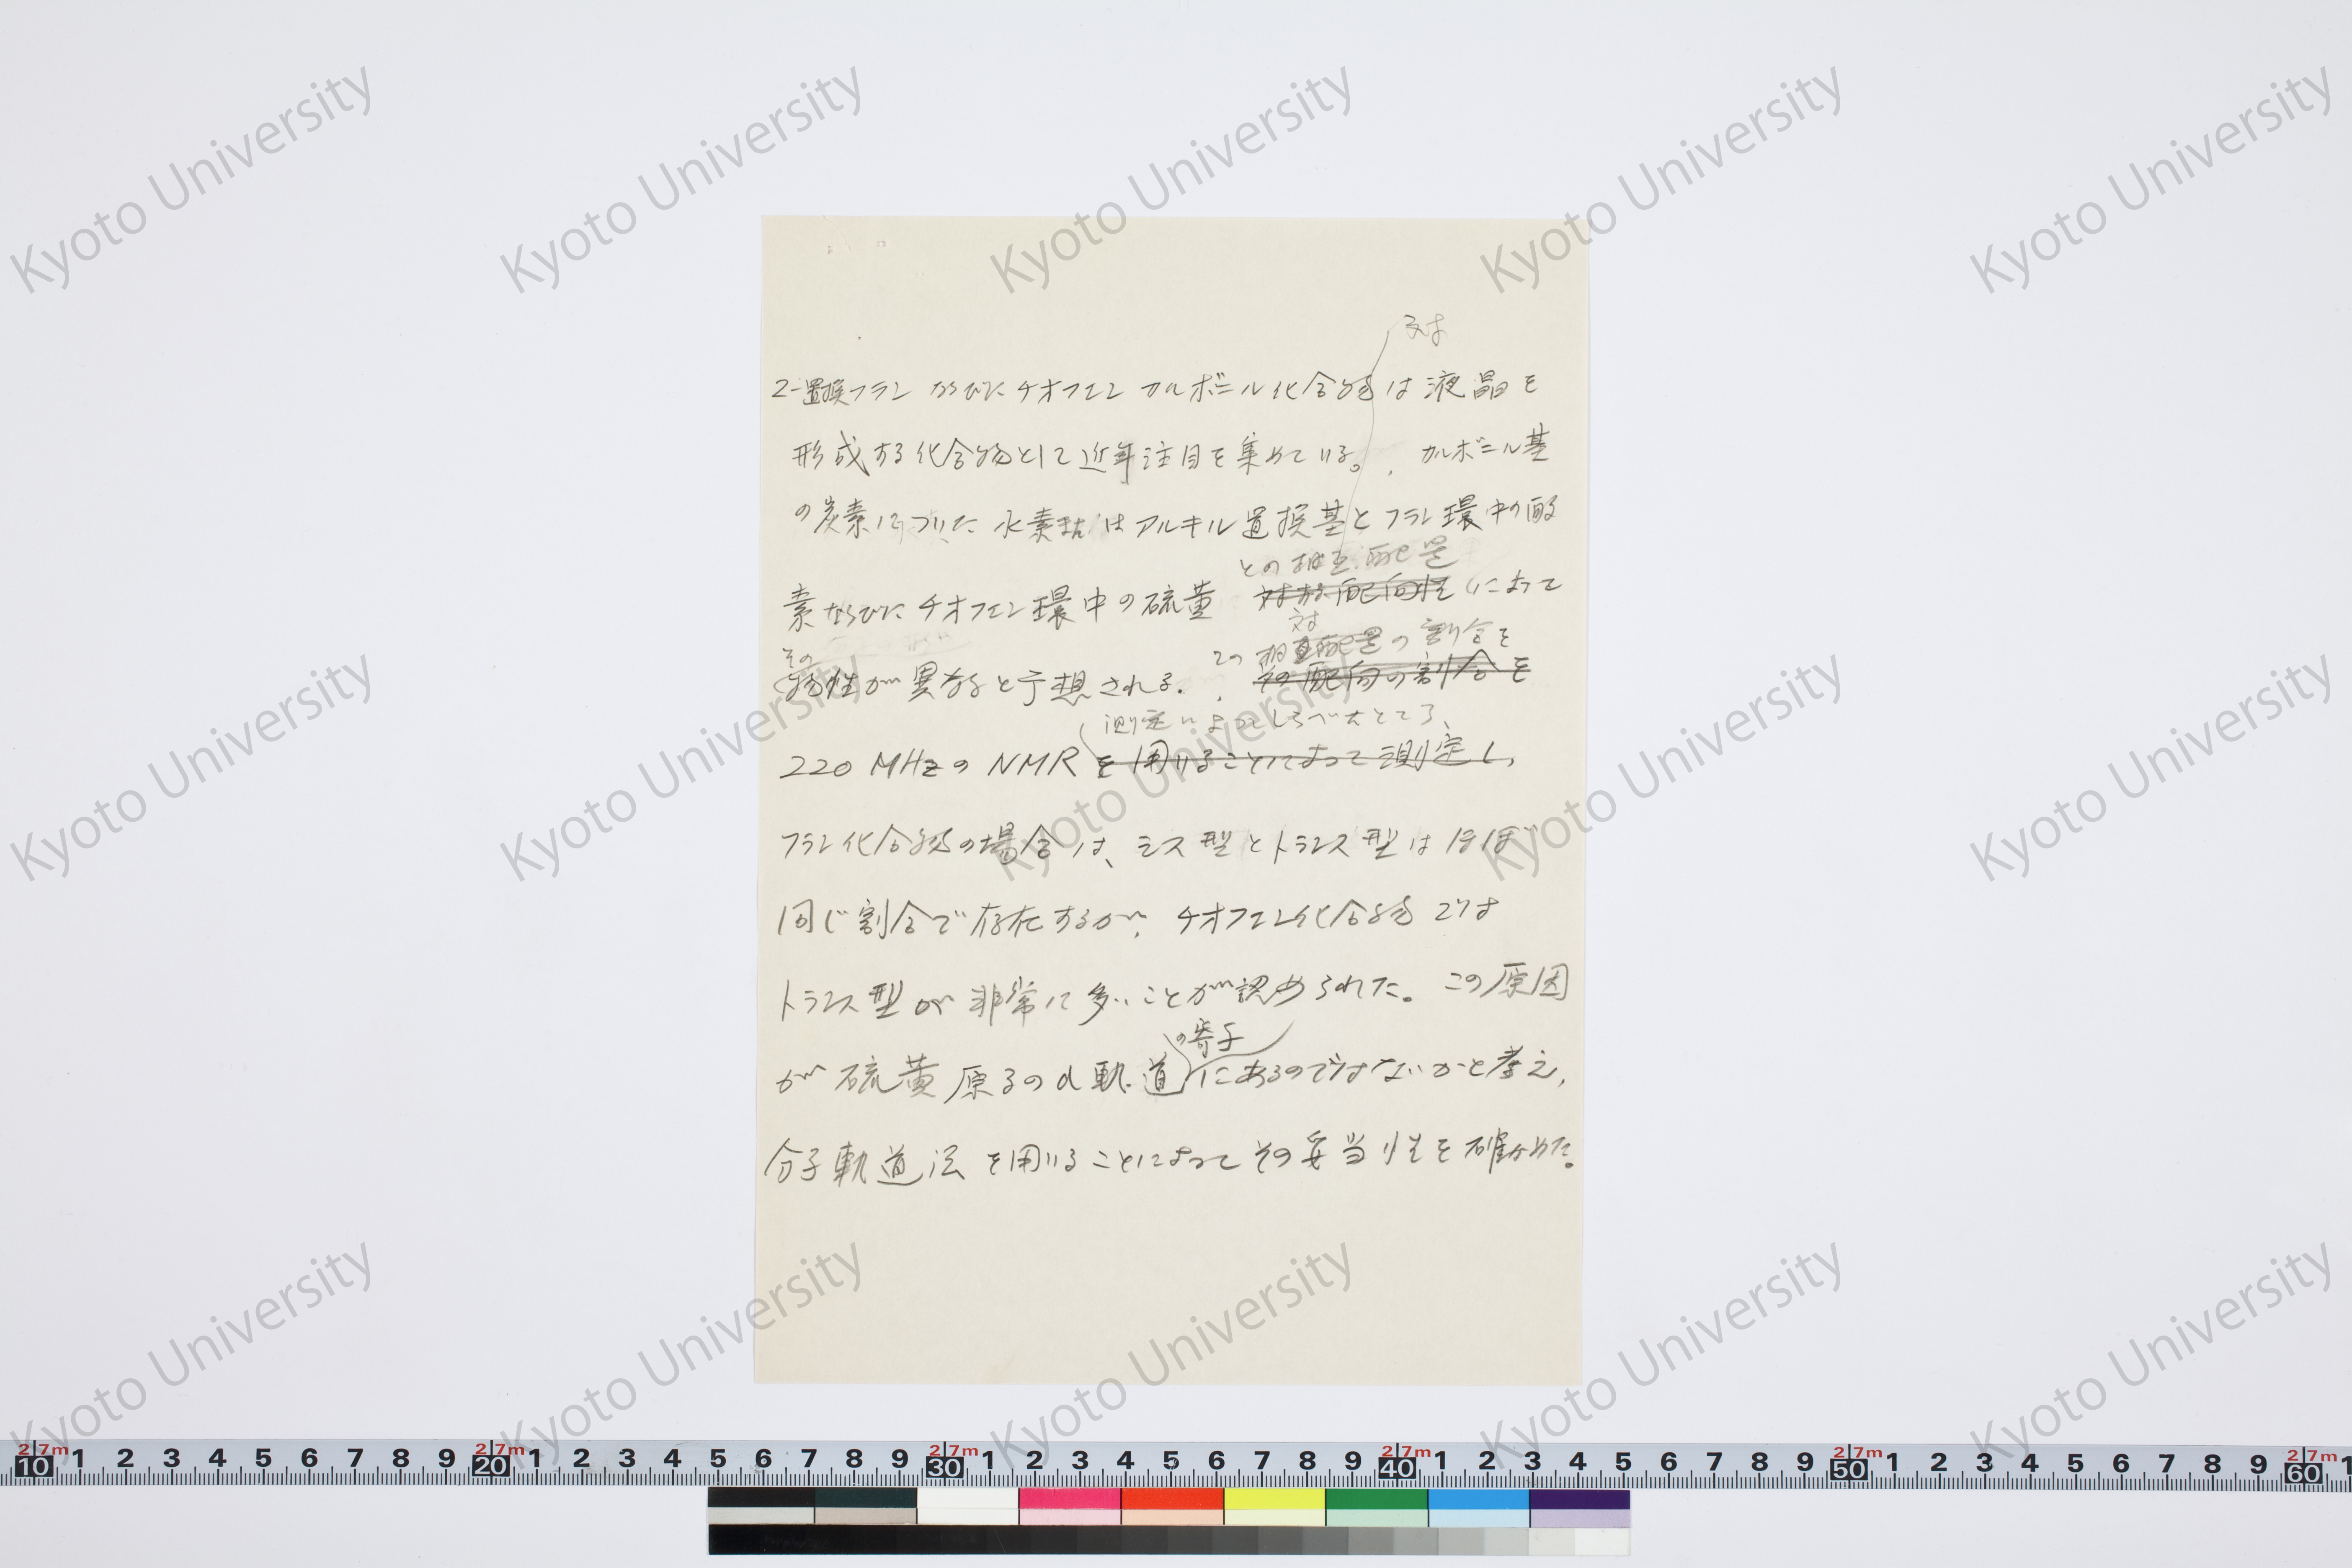 対
2-置換フランならびにチオフェンカルボニル化合物は液晶を
形成する化合物として近年注目を集めている。, カルボニル基
の炭素についた水素またはアルキル置換基とフラン環中の酸
との相互配置
素ならびにチオフェン環中の硫黄 対する配向性によって
対
その
この 相互配置の割合を
物性が異なると予想される. , その配向の割合を
測定によってしらべたところ、
220 MHzのNMRを用いることによって測定し,
フラン化合物の場合は、シス型とトランス型はほぼ
同じ割合で存在するが, チオフェン化合物では
トランス型が非常に多いことが認められた。この原因
の寄与
が硫黄原子のd軌道にあるのではないかと考え,
分子軌道法を用いることによってその妥当性を確かめた。
Kyoto University
2.7m 10 1 2 3 4 5 6 7 8 9 2.7m 20 1 2 3 4 5 6 7 8 9 2.7m 30 1 2 3 4 5 6 7 8 9 2.7m 40 1 2 3 4 5 6 7 8 9 2.7m 50 1 2 3 4 5 6 7 8 9 2.7m 60 1